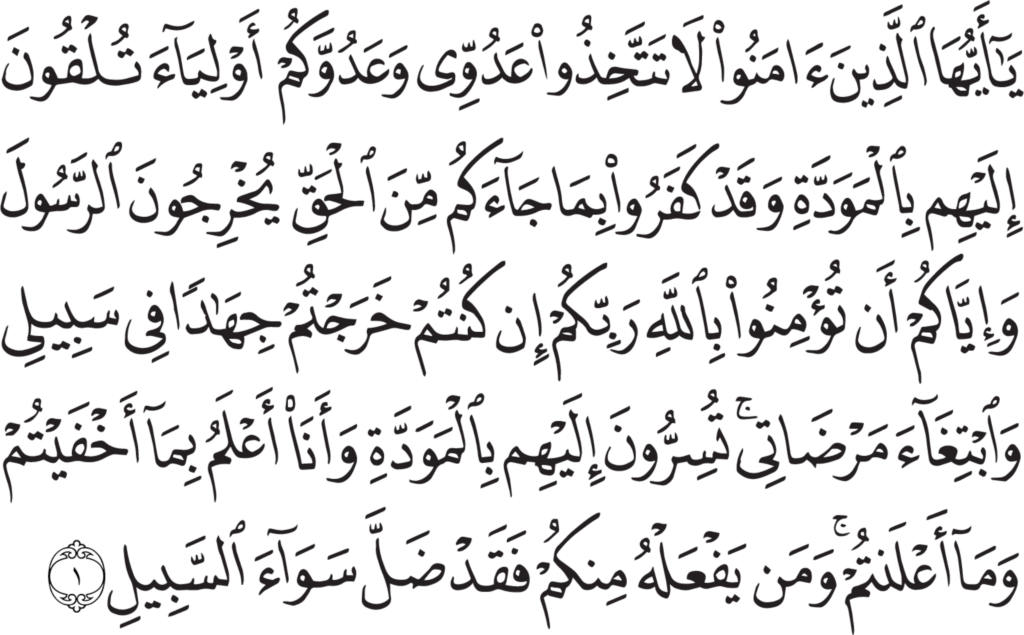 يَـٰٓأَيُّهَا ٱلَّذِينَ ءَامَنُوا۟ لَا تَتَّخِذُوا۟ عَدُوِّى وَعَدُوَّكُمْ أَوْلِيَآءَ تُلْقُونَ
إِلَيْهِم بِٱلْمَوَدَّةِ وَقَدْ كَفَرُوا۟ بِمَا جَآءَكُم مِّنَ ٱلْحَقِّ يُخْرِجُونَ ٱلرَّسُولَ
وَإِيَّاكُمْ أَن تُؤْمِنُوا۟ بِٱللَّهِ رَبِّكُمْ إِن كُنتُمْ خَرَجْتُمْ جِهَـٰدًا فِى سَبِيلِى
وَٱبْتِغَآءَ مَرْضَاتِى ۚ تُسِرُّونَ إِلَيْهِم بِٱلْمَوَدَّةِ وَأَنَا۠ أَعْلَمُ بِمَآ أَخْفَيْتُمْ
وَمَآ أَعْلَنتُمْ ۚ وَمَن يَفْعَلْهُ مِنكُمْ فَقَدْ ضَلَّ سَوَآءَ ٱلسَّبِيلِ ١